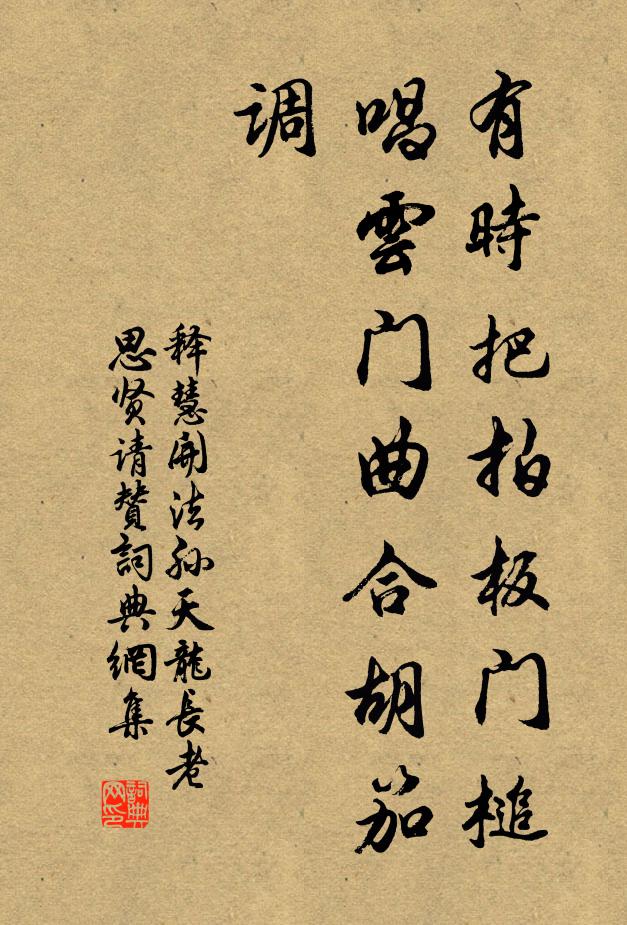 有時把拍板门槌
唱雲门曲合胡笳
调
释慧開法孙天龍長老
思贤请赞詞典網集
詞典网印